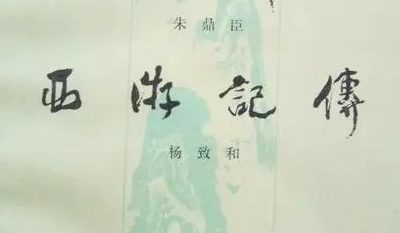 朱鼎臣
西游記傳
杨致和